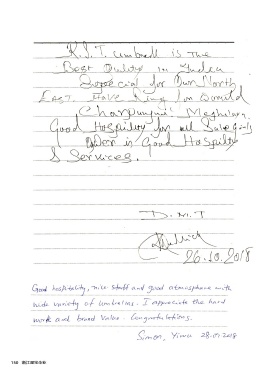 K.S.T. Umbrell is The
Best Quality in India
Special for Our North
East. Have King Im
Charpunji Meghilaya.
Good Hospility for all Sale Girls
is Good Hospility
& Services.
D.M.T
26.10.2018
Good hospitality, nice staff and good atmosphere with
wide variety of umbrellas. I appreciate the hard
work and brand value. Congratulations.
Simon, Yiwu 28.09.2018